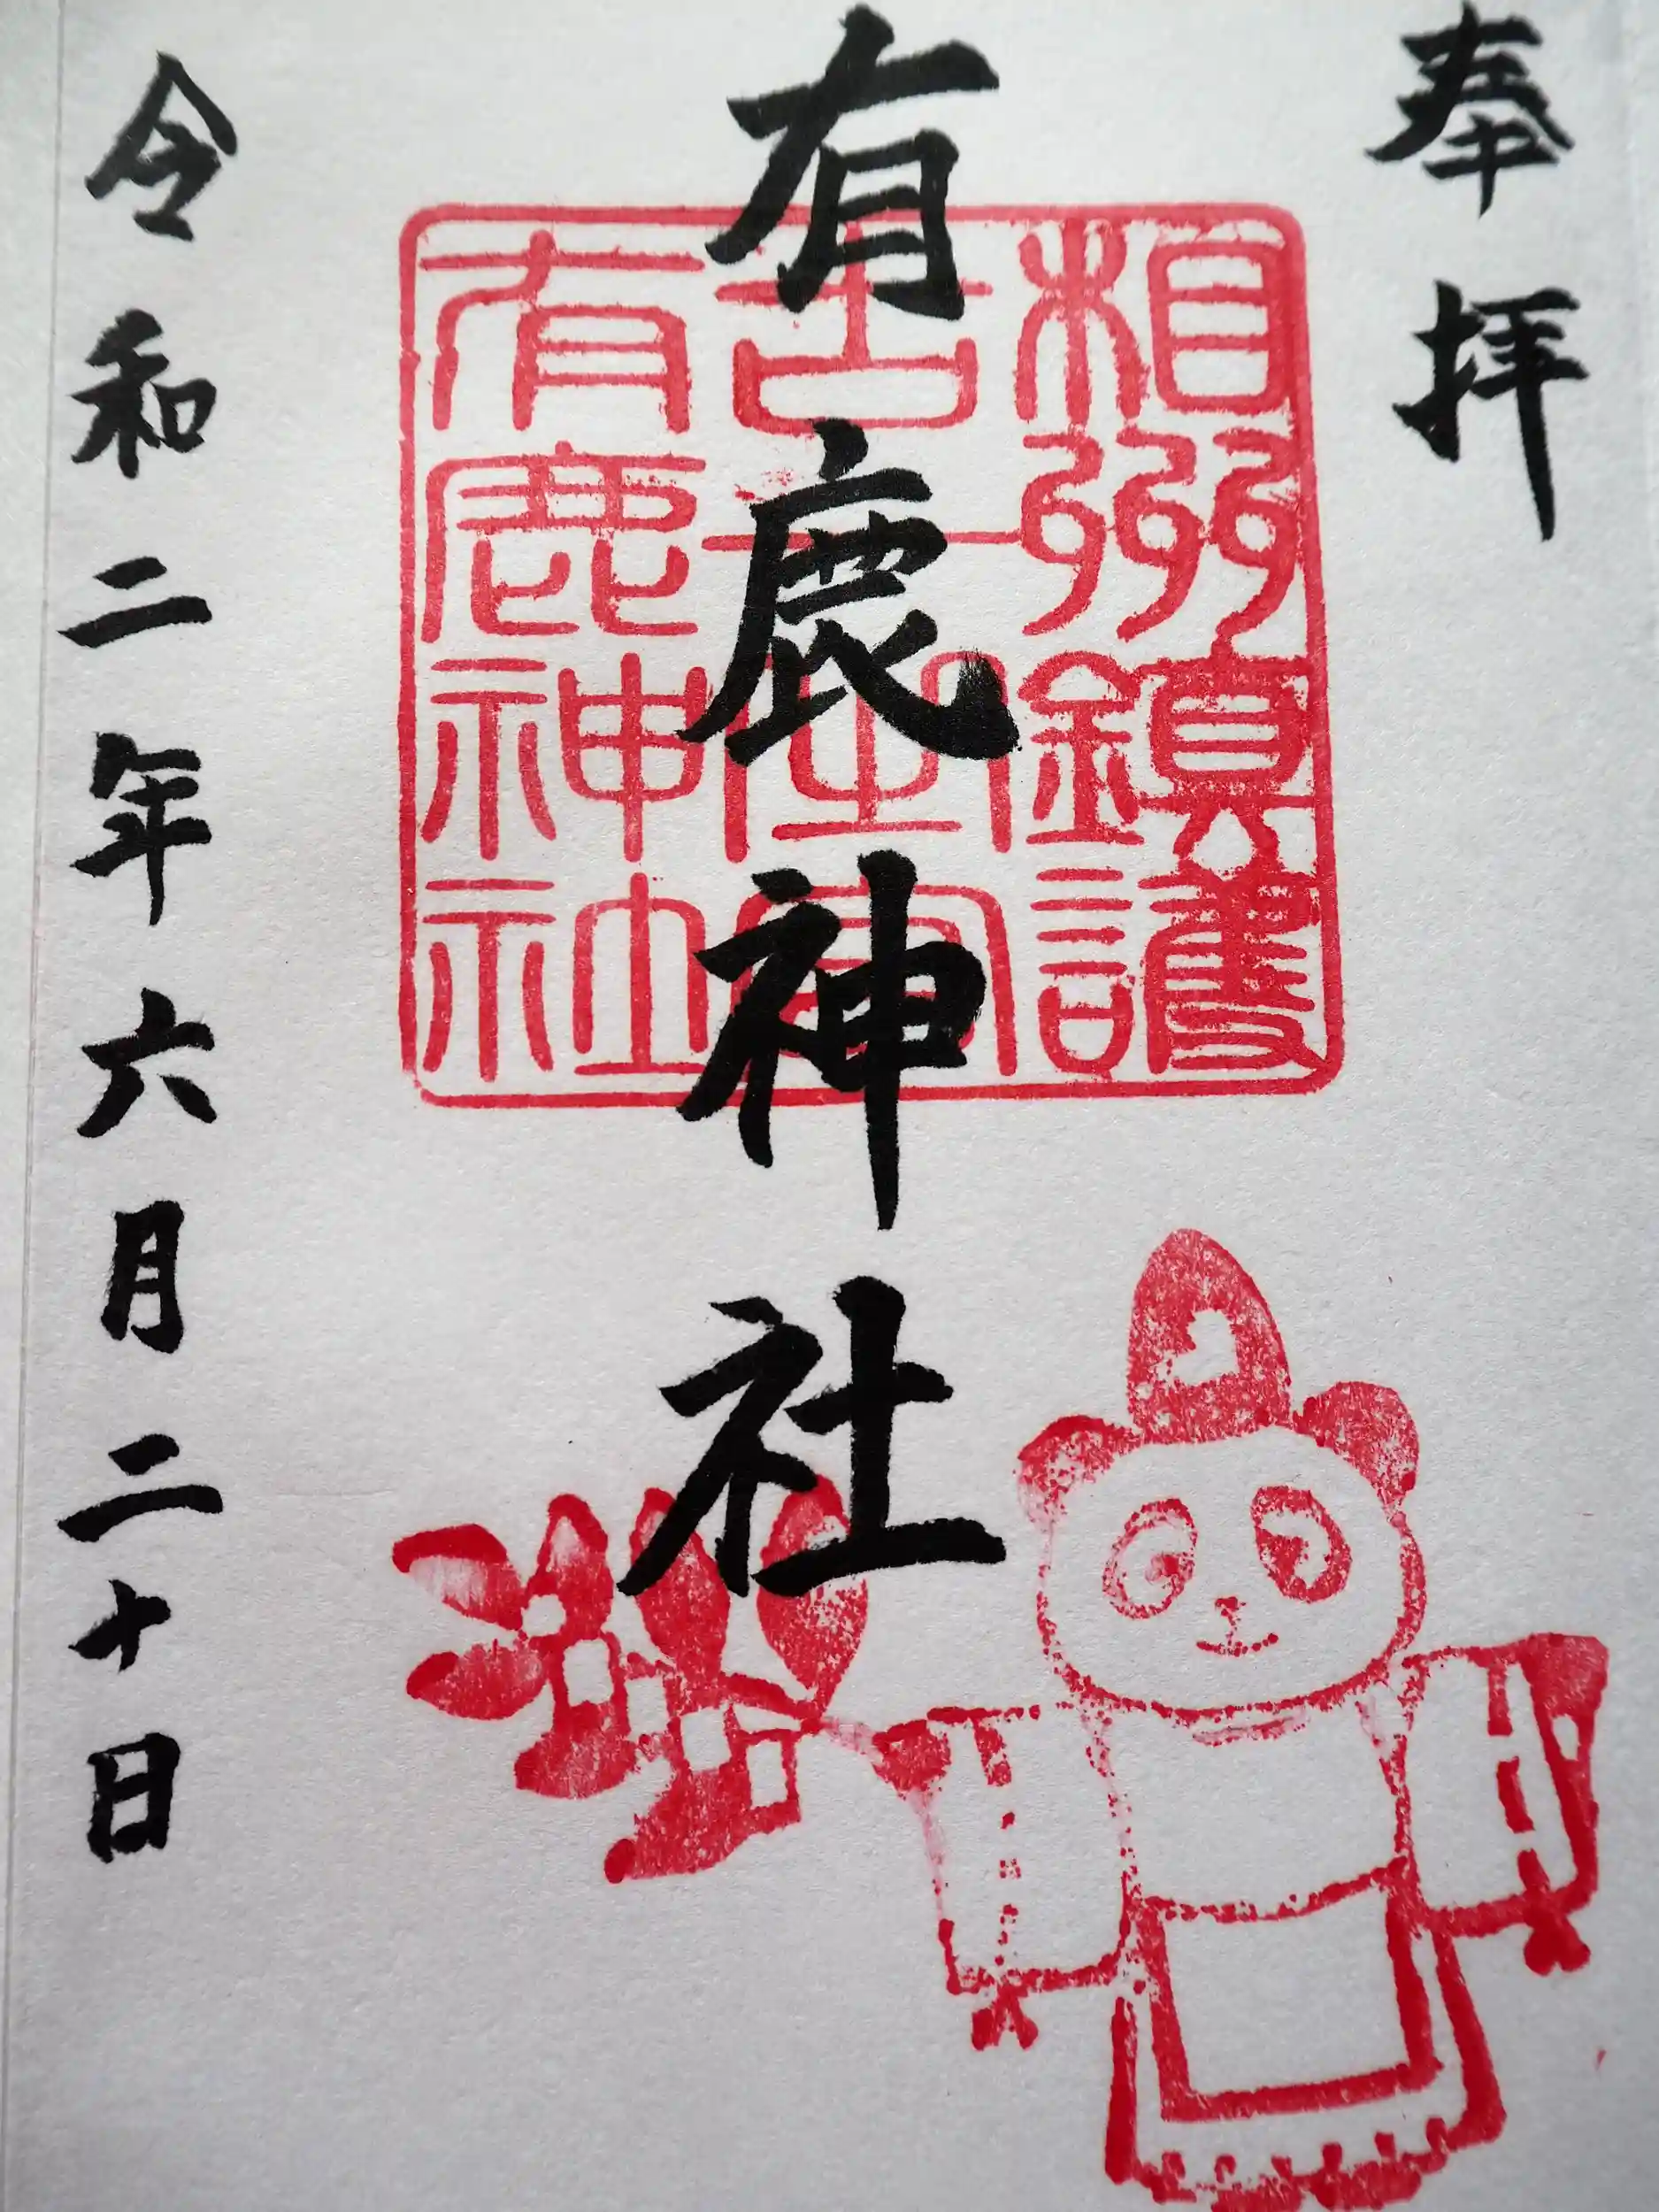 奉拝
有鹿神社
令和二年六月二十日
相州鎮護
有鹿神社